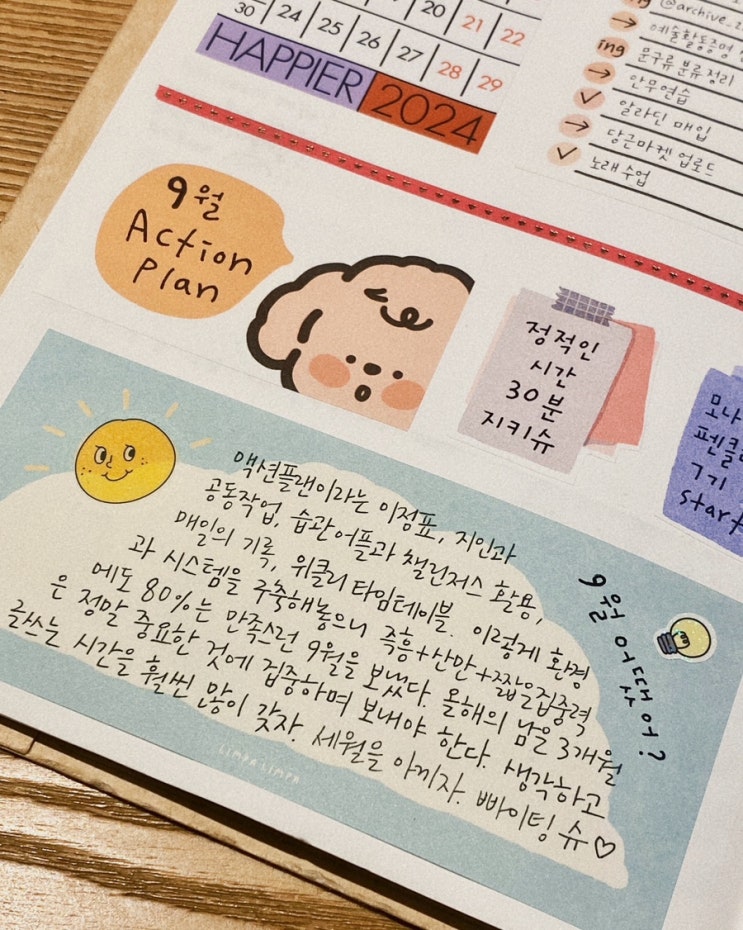 20 21 22
30 24 25 26 27 28 29
HAPPIER 2024
@archive_2
→ 예술활동증명
ing 문구류 분류정리
→ 안무연습
✓ 알라딘 매입
→ 당근마켓 업로드
✓ 노래 수업
9월
Action
Plan
정적인
시간
30분
지키슈
모나
펜클
7기
start
액션플랜이라는 이정표, 지인과
공동작업, 습관어플과 챌린저스 활용,
매일의 기록, 위클리 타임테이블. 이렇게 환경
과 시스템을 구축해놓으니 즉흥+산만+짧은집중력
에도 80%는 만족스런 9월을 보냈다. 올해의 남은 3개월
은 정말 중요한 것에 집중하며 보내야 한다. 생각하고
글쓰는 시간을 훨씬 많이 갖자. 세월을 아끼자. 빠이팅 슈♡
9월 어땠어?
Limpa Limpa